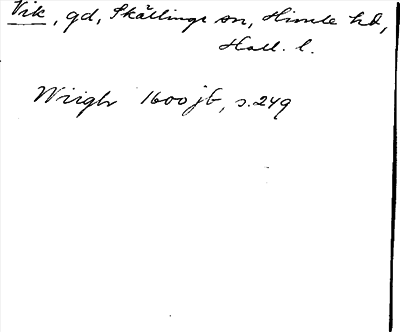 Vik, gd, Skällinge sn, Himle hd,
Hall. l.
Wiigh 1600 jb, s. 249